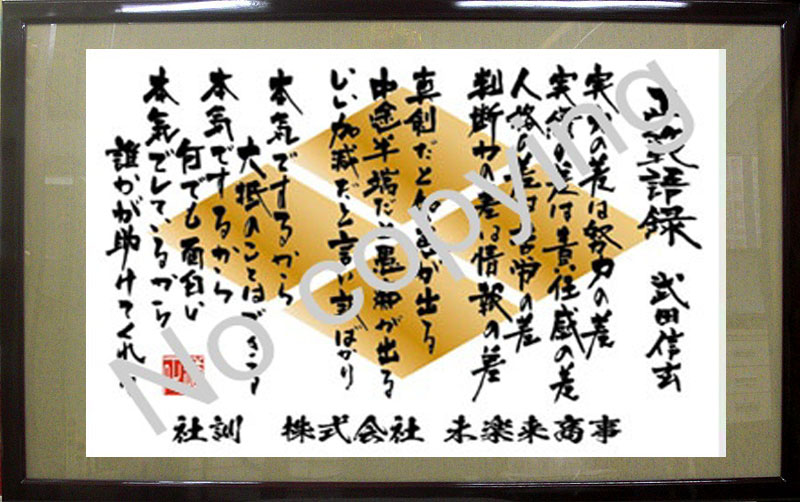 正範語録　武田信玄
実力の差は努力の差
実績の差は責任感の差
人格の差は苦労の差
判断力の差は情報の差
真剣だと知恵が出る
中途半端だと愚痴が出る
いい加減だと言い訳ばかり
本気でするから
大抵のことはできる
本気でするから
何でも面白い
本気でしているから
誰かが助けてくれる
社訓　株式会社　未楽来商事
No copying